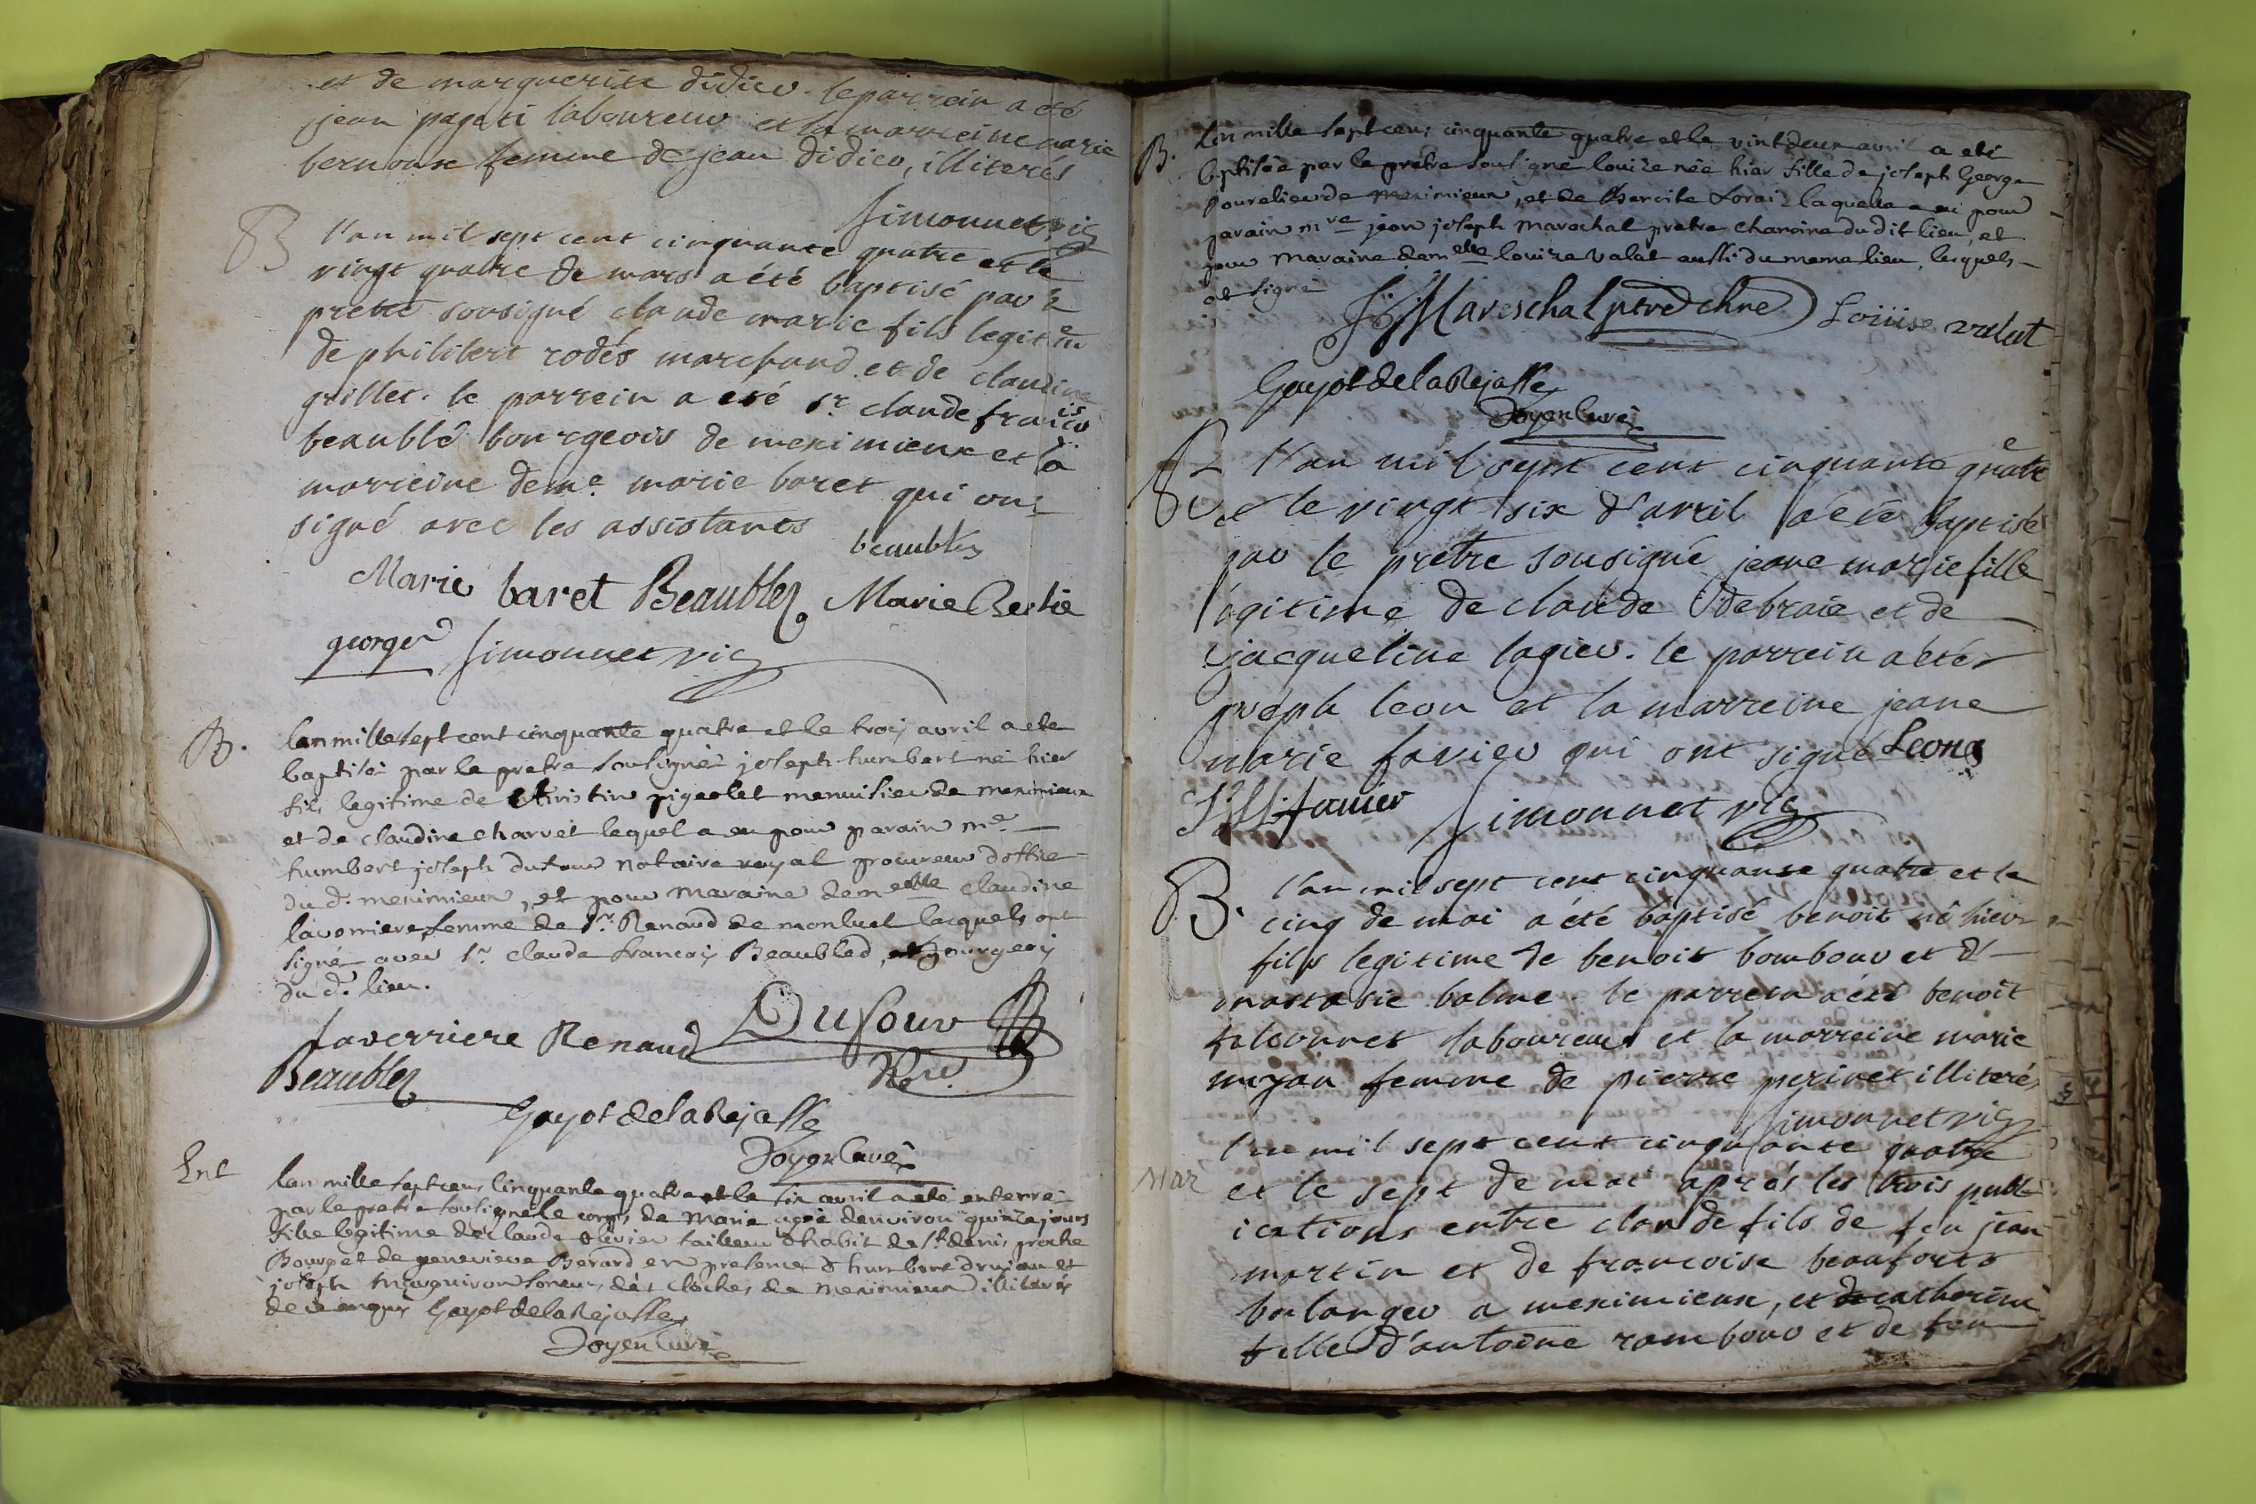 et de marguerite didieu. le parrein a eté
jean pageti laboureur et la marreine marie
bernoux femme de jean didieu, illiterés
Simonnet vic
B l'an mil sept cent cinquante quatre et le
vingt quatre de mars a été baptisé par le
pretre sousigné claude marie fils legitime
de philibert rodés marchand et de claudine
grillet. le parrein a eté sr claude francois
beaublé bourgeois de meximieux et la
marreine deme. marie baret qui ont
signé avec les assistants
beaublez
Marie baret Beaublez Marie Bertie
george Simonnet vic
B. lan mille sept cent cinquante quatre et le troij avril a ete
baptisé par le pretre sousigné joseph humbert né hier
fils legitime de Christin pigeolet menuisier de meximieux
et de claudine charvet lequel a eu pour parain me.
humbert joseph dufour notaire royal procureur doffice
du d. meximieux, et pour maraine demelle claudine
laverriere femme de Sr. Renaud de montluel lesquels ont
signé avec Sr. claude francoij Beaubled, bourgeoij
du d. lieu.
Laverriere Renaud Dufour
Beaublez
Guyot de la Rejasse
Doyen Curé
Ent lan mille sept cens cinquante quatre et le six avril a eté enterré
par le pretre sousigné le corps de Marie agée denviron quinze jours
fille legitime de claude olivier tailleur dhabit de St denis proche
Bourg et de genevieve Berard en presence d humbert drujon et
joseph sonneur des cloches de meximieux illiterés
de ce enquis Guyot de la Rejasse
Doyen Curé
B. Lan mille sept cens cinquante quatre et le vint deux avril a eté
bptisée par le pretre sousigné louize née hier fille de joseph George
de meximieux, et de laquelle a eu pour
parain mre jean joseph marechal pretre chanoine du dit lieu, et
pour maraine demelle louize valat aussi du meme lieu, lesquels
ont signé
JJ Mareschal ptre chne Loüise valat
Guyot de la Rejasse
Doyen Curé
B l'an mil sept cent cinquante quatre
et le vingt six d'avril a eté baptisée
par le pretre sousigné jeane marie fille
legitime de claude debraie et de
jacqueline lagieu. le parrein a eté
joseph leon et la marreine jeane
marie favier qui ont signé Leon
J M favier Simonnet vic
B. l'an mil sept cent cinquante quatre et le
cinq de mai a été baptisé benoit né hier
fils legitime de benoit bombour et d'
anastasie balme. le parrein a été benoit
laboureur et la marreine marie
femme de pierre perinet illiterés
Simonnet vic
Mar l'an mil sept cent cinquante quatre
et le sept de mai aprés les trois publ
ications entre claude fils de feu jean
martin et de francoise beaufort
boulanger a meximieux, et catherine
fille d'antoine rambour et de feu